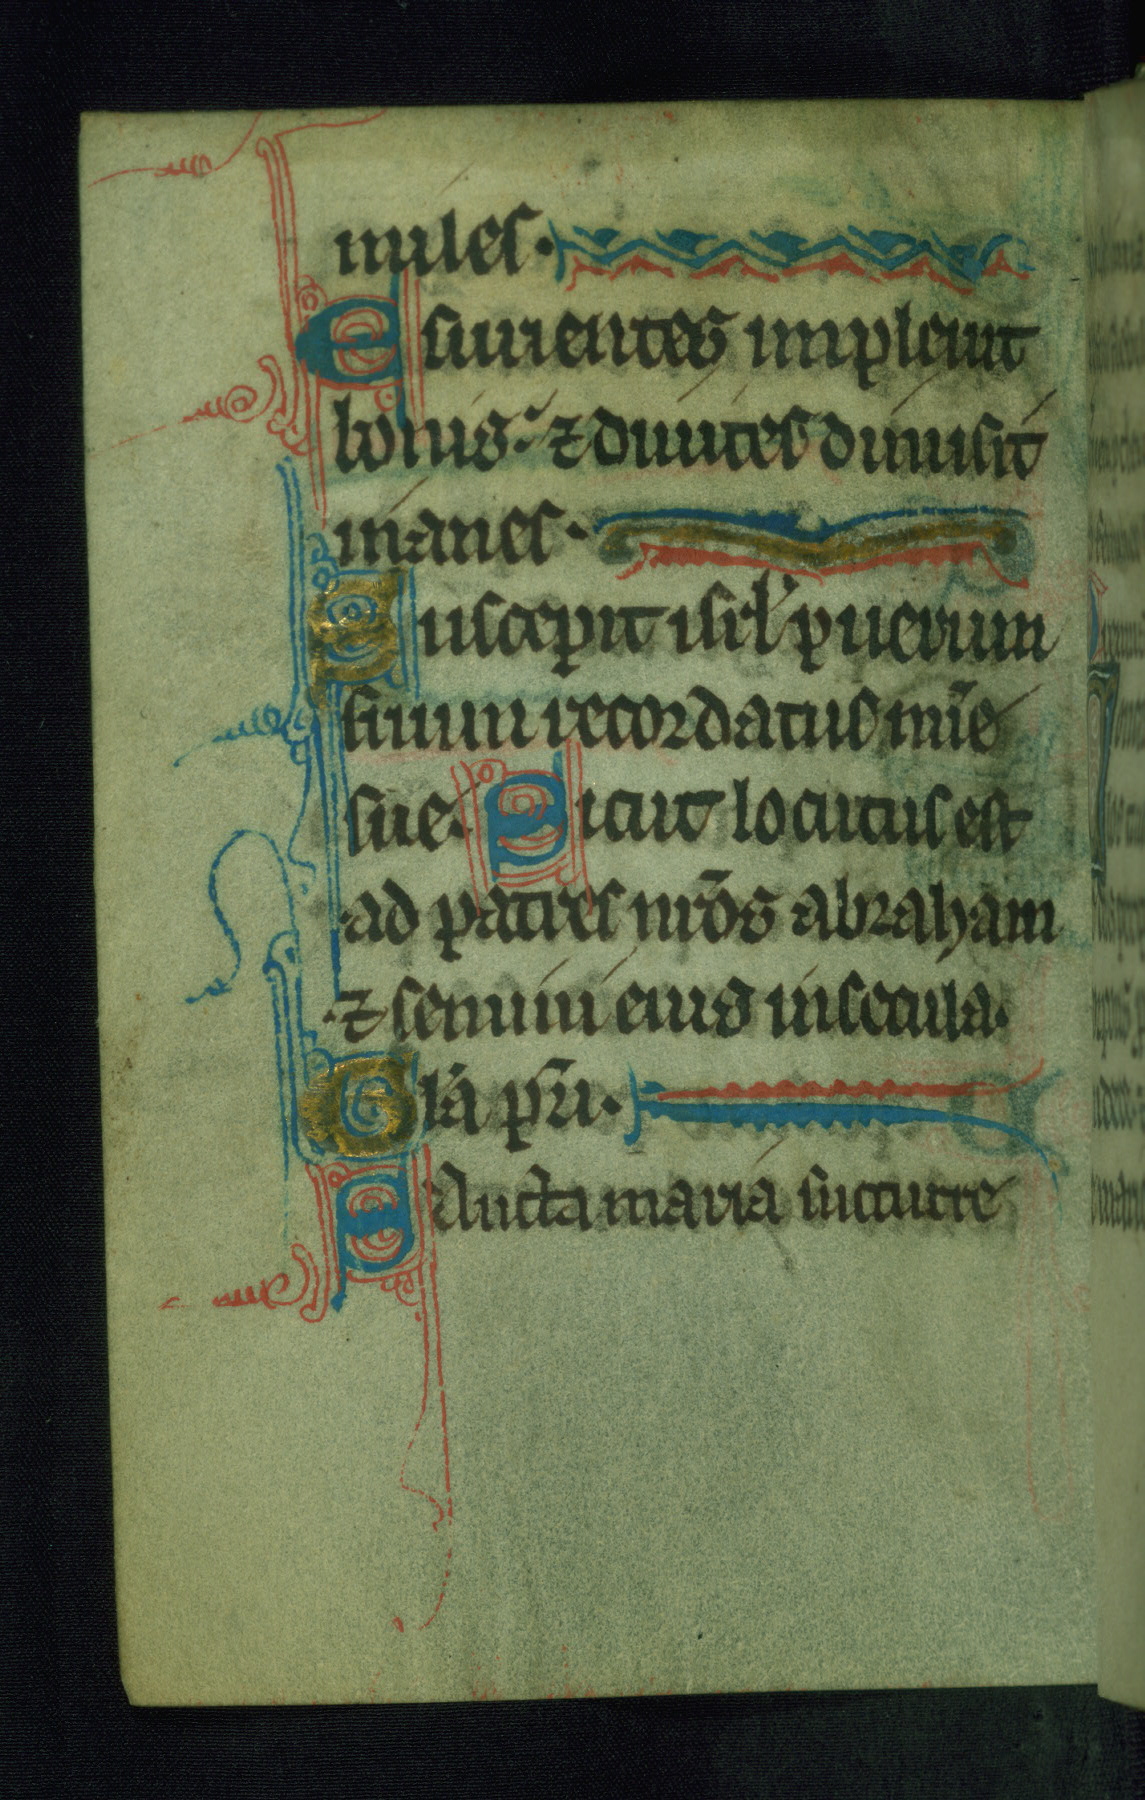 miles.
Esurientes impleuit
bonis. ⁊ diuites dimisit
inanes.
Suscepit isrł puerum
suum recordatus mīe
sue. Sicut locutus est
ad patres nr̄os abraham
⁊ semini eius in secula.
Glā pr̄i.
Sancta maria succurre